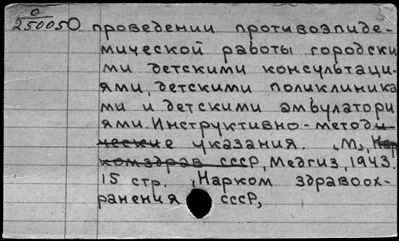 О
250050 проведении противоэпиде-
мической работы городски
ми детскими консультаци-
ями, детскими поликлиника
ми и детскими амбулатори
ями. Инструктивно-методи-
ческие указания. М., Нар
комздрав СССР, Медгиз, 1943.
15 стр. (Нарком здравоох-
ранения СССР,